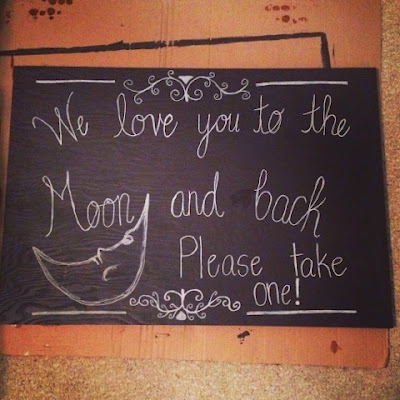 We love you to the
Moon and back
Please take
one!